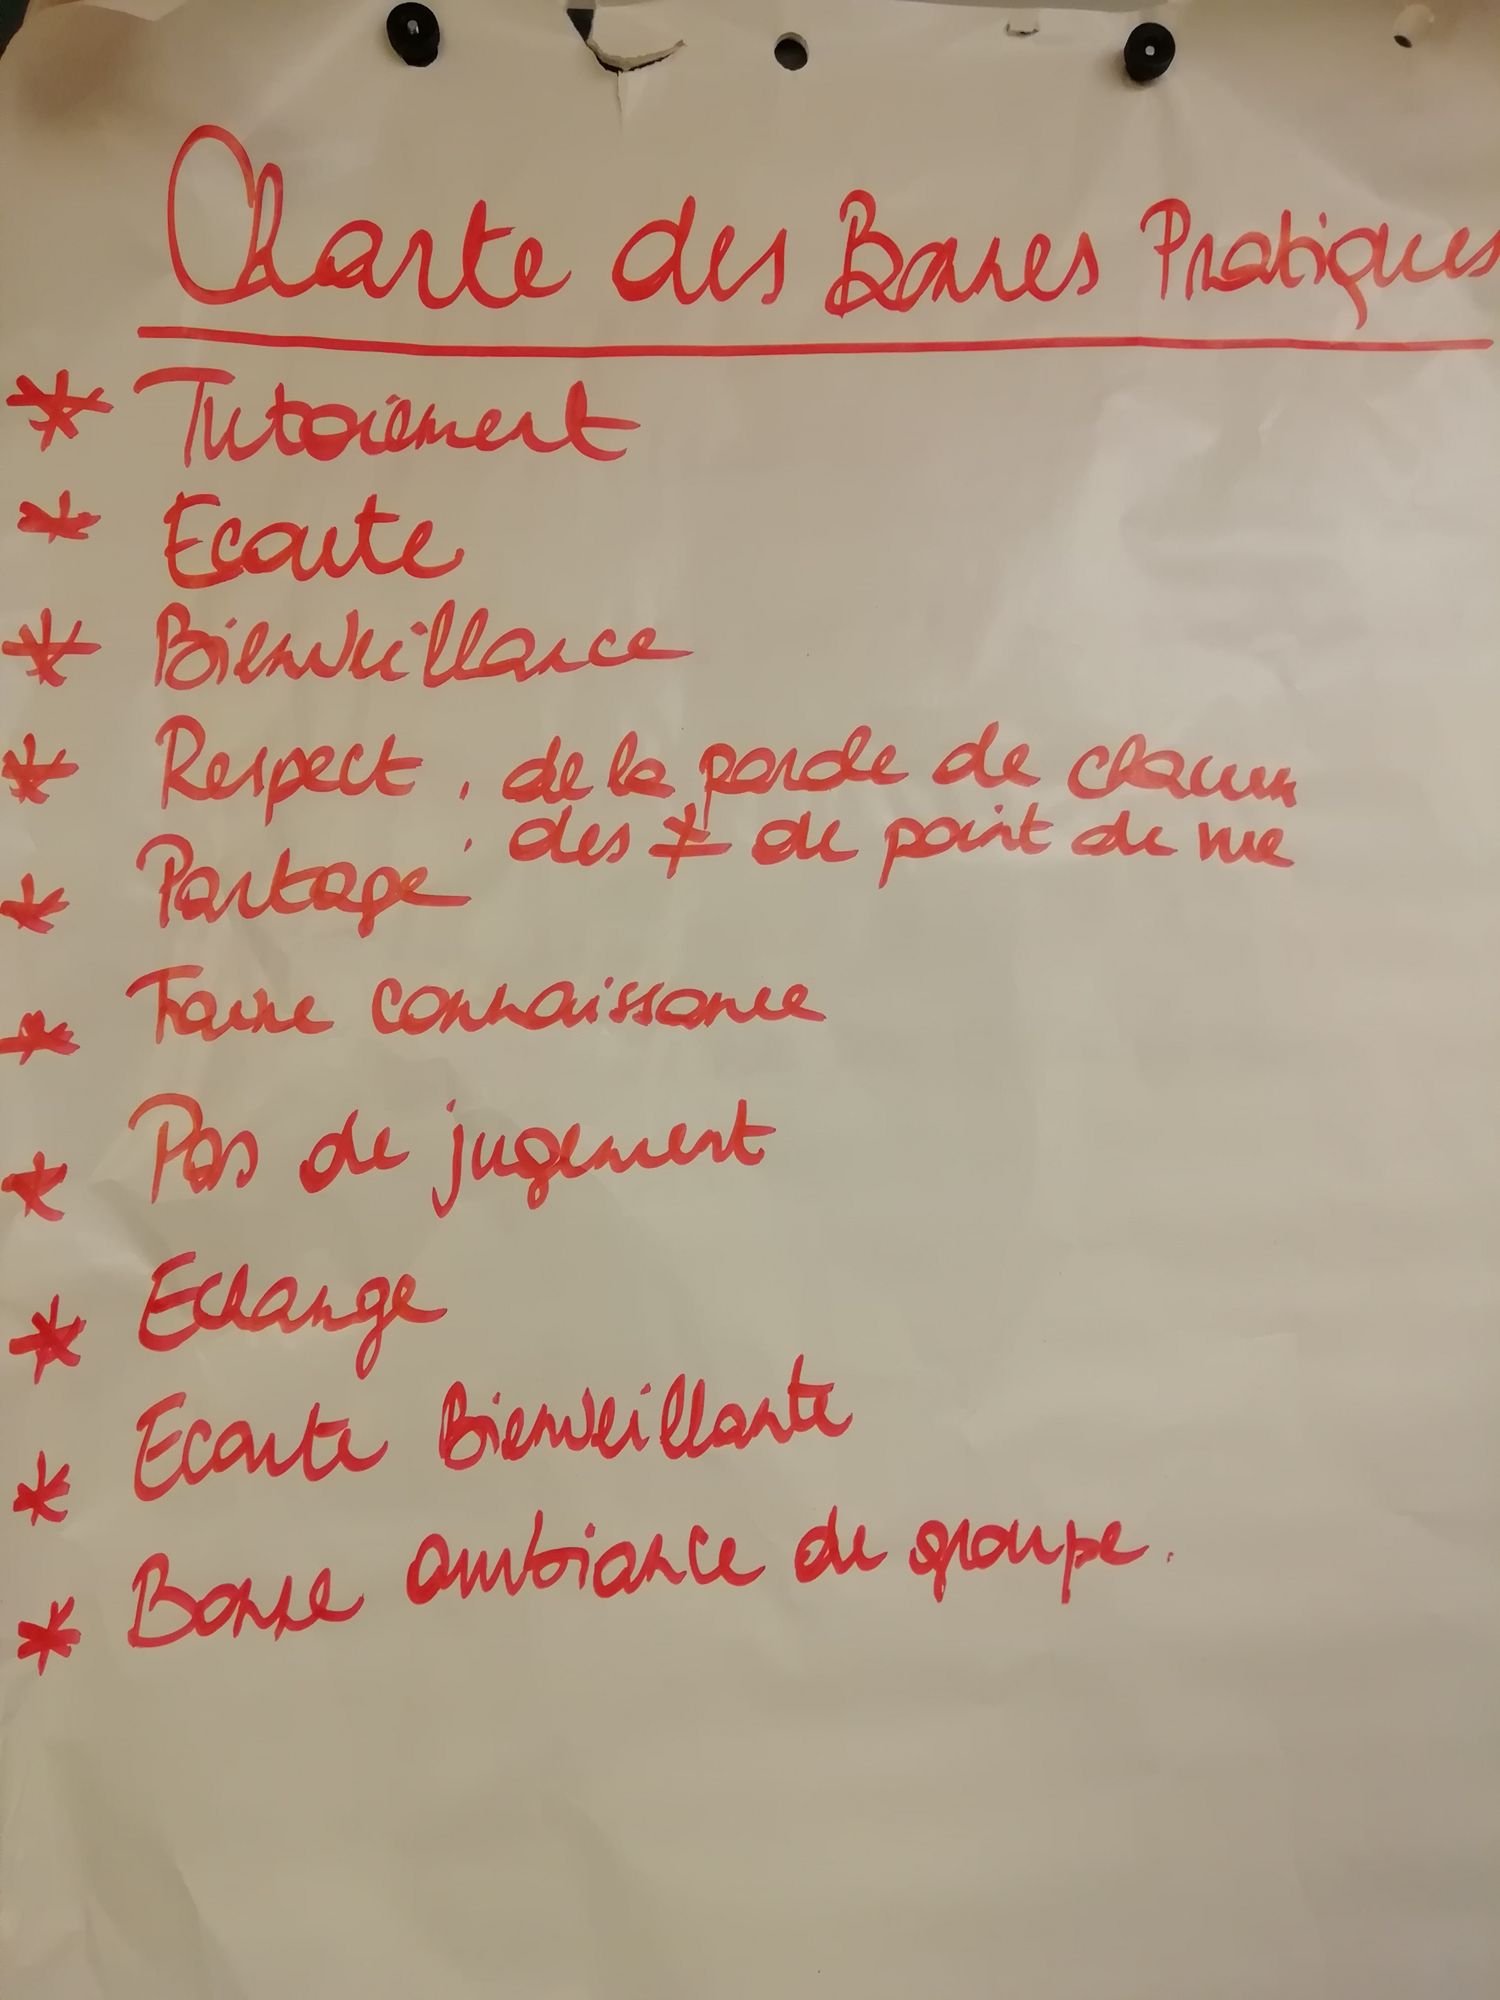 Charte des Bonnes Pratiques
* Tutoiement
* Ecoute
* Bienveillance
* Respect . de la parole de chacun
. des ≠ de point de vue
* Partage
* Faire connaissance
* Pas de jugement
* Echange
* Ecoute Bienveillante
* Bonne ambiance de groupe.